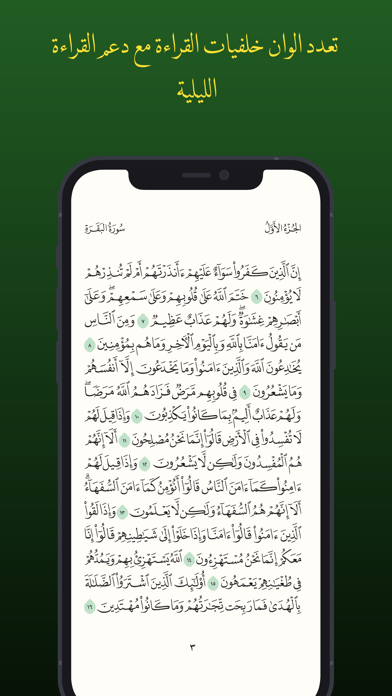 تعدد الوان خلفيات القراءة مع دعم القراءة
الليلية
الجُزْءُ الأَوَّلُ سُورَةُ البَقَرَةِ
إِنَّ ٱلَّذِينَ كَفَرُوا۟ سَوَآءٌ عَلَيْهِمْ ءَأَنذَرْتَهُمْ أَمْ لَمْ تُنذِرْهُمْ
لَا يُؤْمِنُونَ ٦ خَتَمَ ٱللَّهُ عَلَىٰ قُلُوبِهِمْ وَعَلَىٰ سَمْعِهِمْ ۖ وَعَلَىٰٓ
أَبْصَٰرِهِمْ غِشَٰوَةٌ ۖ وَلَهُمْ عَذَابٌ عَظِيمٌ ٧ وَمِنَ ٱلنَّاسِ
مَن يَقُولُ ءَامَنَّا بِٱللَّهِ وَبِٱلْيَوْمِ ٱلْءَاخِرِ وَمَا هُم بِمُؤْمِنِينَ ٨
يُخَٰدِعُونَ ٱللَّهَ وَٱلَّذِينَ ءَامَنُوا۟ وَمَا يَخْدَعُونَ إِلَّآ أَنفُسَهُمْ
وَمَا يَشْعُرُونَ ٩ فِى قُلُوبِهِم مَّرَضٌ فَزَادَهُمُ ٱللَّهُ مَرَضًا ۖ
وَلَهُمْ عَذَابٌ أَلِيمٌۢ بِمَا كَانُوا۟ يَكْذِبُونَ ١٠ وَإِذَا قِيلَ لَهُمْ
لَا تُفْسِدُوا۟ فِى ٱلْأَرْضِ قَالُوٓا۟ إِنَّمَا نَحْنُ مُصْلِحُونَ ١١ أَلَآ إِنَّهُمْ
هُمُ ٱلْمُفْسِدُونَ وَلَٰكِن لَّا يَشْعُرُونَ ١٢ وَإِذَا قِيلَ لَهُمْ
ءَامِنُوا۟ كَمَآ ءَامَنَ ٱلنَّاسُ قَالُوٓا۟ أَنُؤْمِنُ كَمَآ ءَامَنَ ٱلسُّفَهَآءُ ۗ
أَلَآ إِنَّهُمْ هُمُ ٱلسُّفَهَآءُ وَلَٰكِن لَّا يَعْلَمُونَ ١٣ وَإِذَا لَقُوا۟
ٱلَّذِينَ ءَامَنُوا۟ قَالُوٓا۟ ءَامَنَّا وَإِذَا خَلَوْا۟ إِلَىٰ شَيَٰطِينِهِمْ قَالُوٓا۟ إِنَّا
مَعَكُمْ إِنَّمَا نَحْنُ مُسْتَهْزِءُونَ ١٤ ٱللَّهُ يَسْتَهْزِئُ بِهِمْ وَيَمُدُّهُمْ
فِى طُغْيَٰنِهِمْ يَعْمَهُونَ ١٥ أُو۟لَٰٓئِكَ ٱلَّذِينَ ٱشْتَرَوُا۟ ٱلضَّلَٰلَةَ
بِٱلْهُدَىٰ فَمَا رَبِحَت تِّجَٰرَتُهُمْ وَمَا كَانُوا۟ مُهْتَدِينَ ١٦
٣